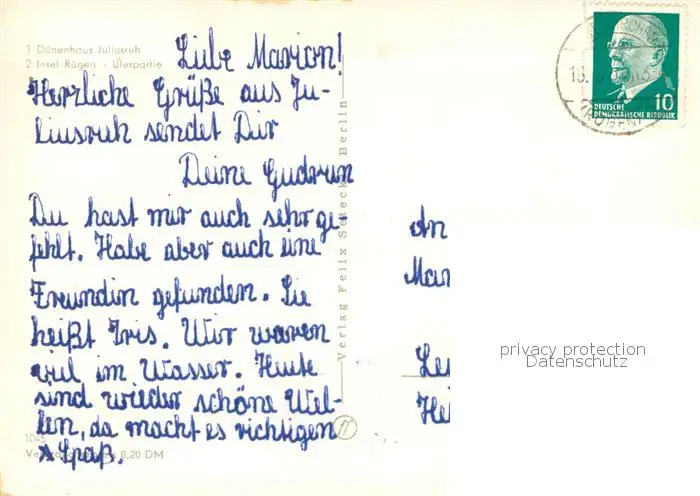 1 Dünenhaus Juliusruh
2 Insel Rügen - Uferpartie
Liebe Marion!
Herzliche Grüße aus Ju-
liusruh sendet Dir
Deine Gudrun
Du hast mir auch sehr ge-
fehlt. Habe aber auch eine
Freundin gefunden. Sie
heißt Iris. Wir waren
viel im Wasser. Heute
sind wieder schöne Wel-
len, da macht es richtigen
Spaß.
1045
0,20 DM
Verlag Felix Setecki Berlin
11
DEUTSCHE
DEMOKRATISCHE REPUBLIK
10
(RÜGEN)
An
Mar
Le
He
privacy protection
Datenschutz